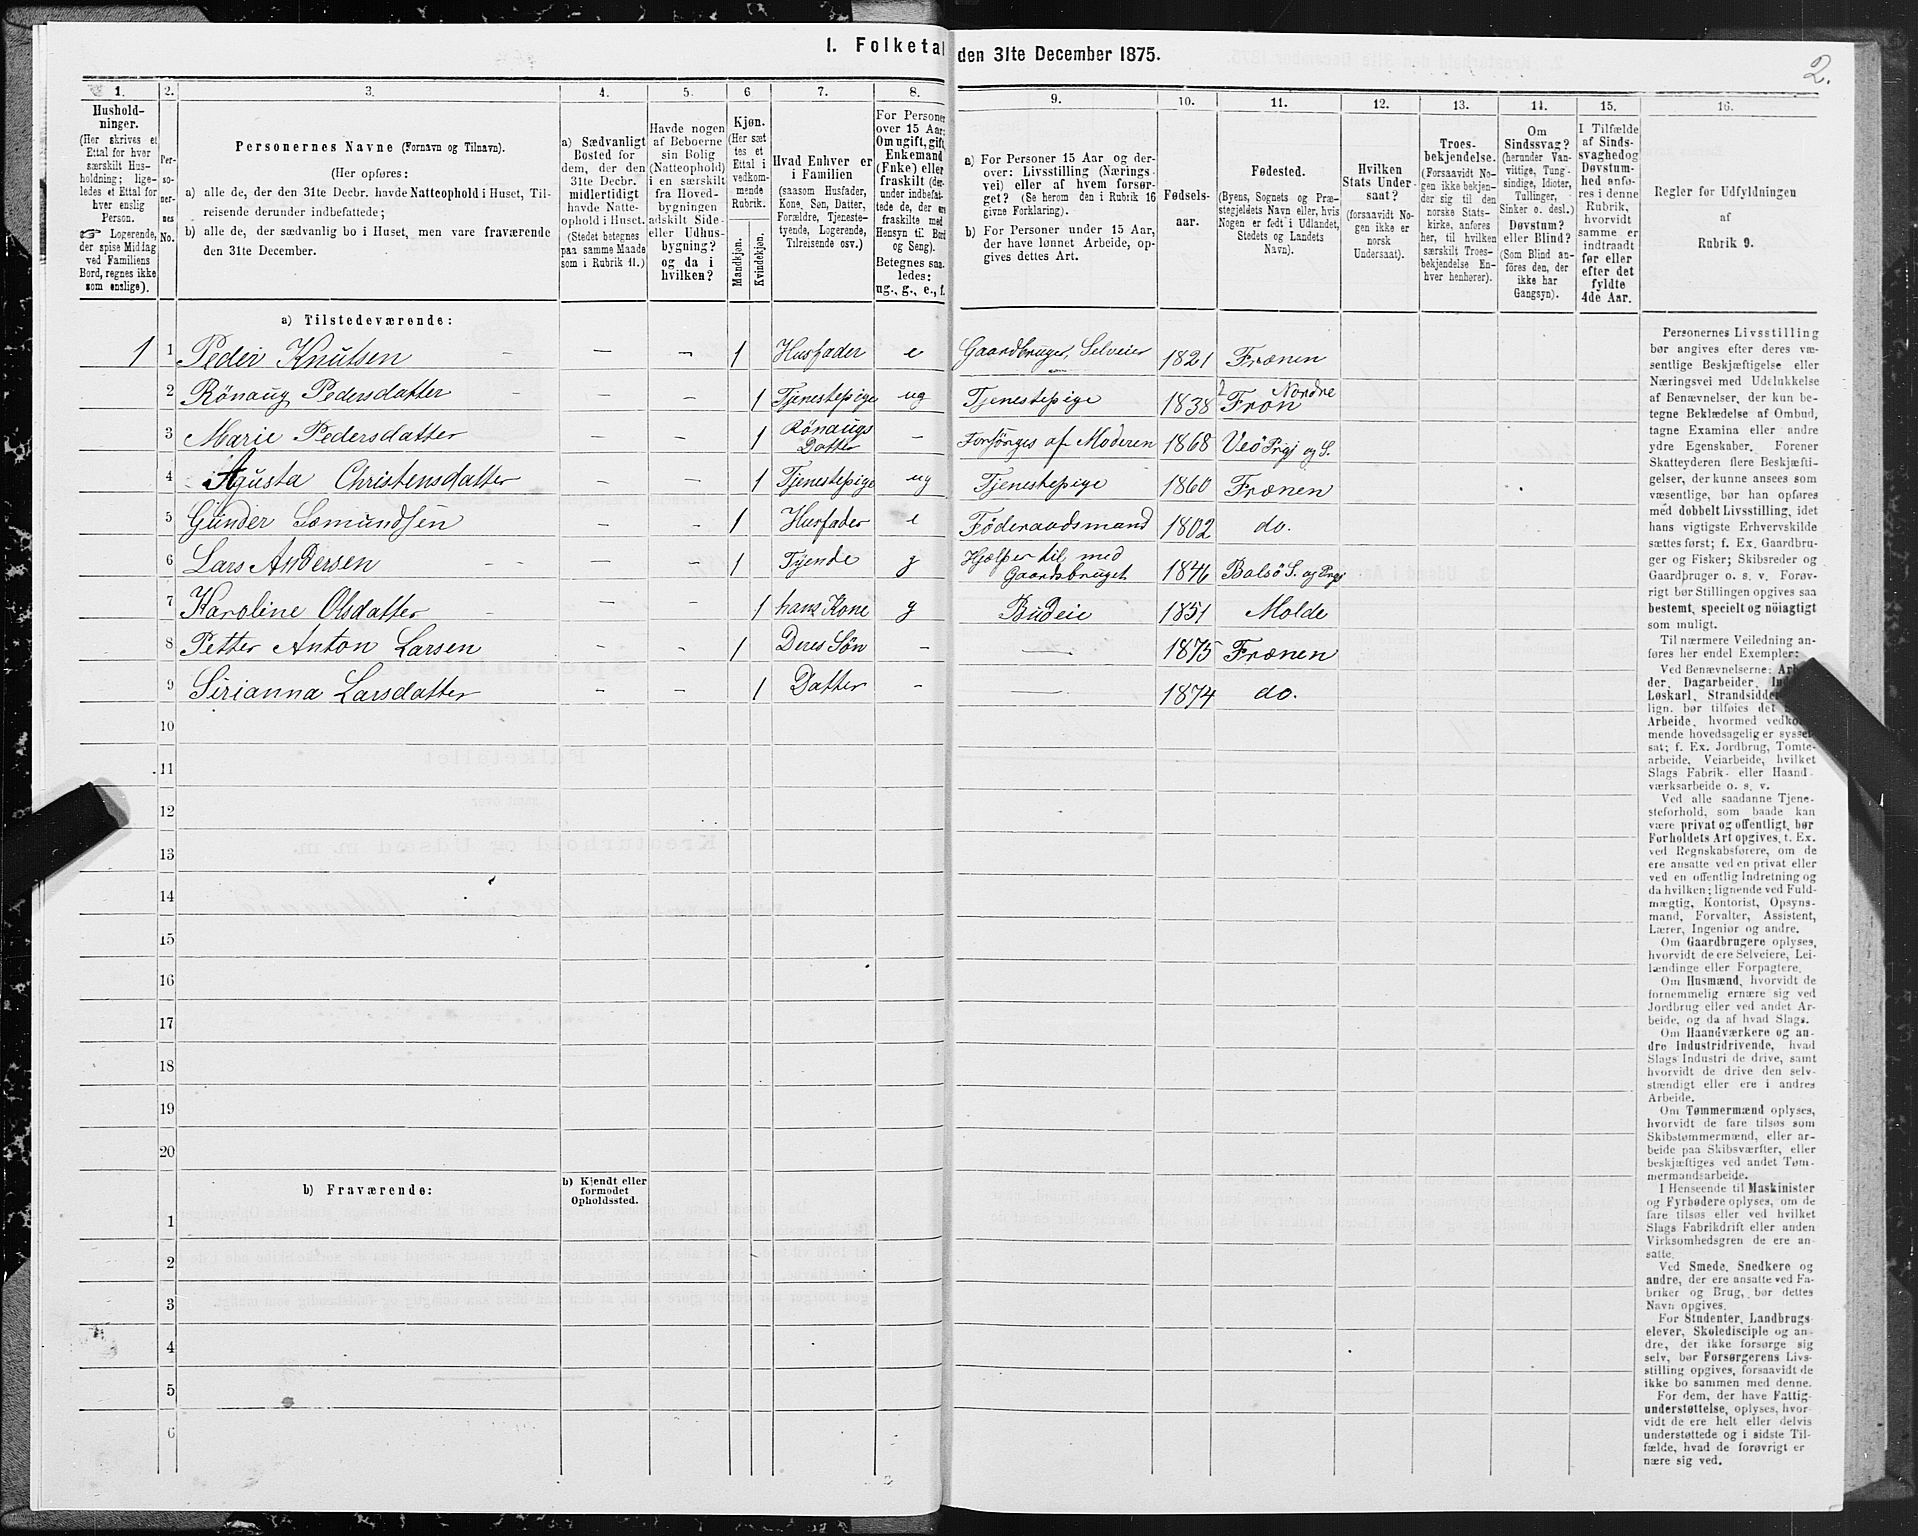 I. Folketal den 31te December 1875.
2.
1.
2.
3.
4.
5.
6
7.
8.
9.
10.
11.
12.
13.
14.
15.
16.
Hushold-
ninger.
(Her skrives et
Ettal for hver
særskilt Hus-
holdning; lige-
ledes et Ettal for
hver enslig
Person.
☞ Logerende,
der spise Middag
ved Familiens
Bord, regnes ikke
som enslige).
Per-
so-
ner-
nes
No.
Personernes Navne (Fornavn og Tilnavn).
(Her opføres:
a) alle de, der den 31te Decbr. havde Natteophold i Huset, Til-
reisende derunder indbefattede;
b) alle de, der sædvanlig bo i Huset, men vare fraværende
den 31te December.
a) Sædvanligt
Bosted for
dem, der den
31te Decbr.
midlertidigt
havde Natte-
ophold i Huset.
(Stedet betegnes
paa samme Maade
som i Rubrik 11.)
Havde nogen
af Beboerne
sin Bolig
(Natteophold)
i en særskilt
fra Hoved-
bygningen
adskilt Side-
eller Udhus-
bygning?
og da i
hvilken?
Kjøn.
(Her sæt
tes et
Ettal i
vedkom-
mende
Rubrik.
Mandkjøn.
Kvindekjøn.
Hvad Enhver er
i Familien
(saasom Husfader,
Kone, Søn, Datter,
Forældre, Tjeneste-
tyende, Logerende,
Tilreisende osv.)
For Personer
over 15 Aar:
Om ugift, gift,
Enkemand
(Enke) eller
fraskilt (der-
under indbefat-
tede de, der ere
fraskilte med
Hensyn til Bord
og Seng).
Betegnes saa-
ledes:
ug., g., e., f.
a) For Personer 15 Aar og der-
over: Livsstilling (Nærings-
vei) eller af hvem forsør-
get? (Se herom den i Rubrik 16
givne Forklaring).
b) For Personer under 15 Aar,
der have lønnet Arbeide, op-
gives dettes Art.
Fødsels-
aar.
Fødested.
(Byens, Sognets og Præ-
stegjeldets Navn eller, hvis
Nogen er født i Udlandet,
Stedets og Landets
Navn).
Hvilken
Stats Under-
saat?
(forsaavidt No-
gen ikke er
norsk
Undersaat).
Troes-
bekjendelse.
(Forsaavidt No-
gen ikke bekjen-
der sig til den
norske Stats-
kirke, anføres
her, til hvilken
særskilt Troes-
bekjendelse En-
hver henhører).
Om
Sindssvag?
(herunder Van-
vittige, Tung-
sindige, Idioter,
Tullinger,
Sinker o. desl.)
Døvstum?
eller Blind?
(Som Blind an-
føres den, der
ikke har
Gangsyn).
I Tilfælde
af Sinds-
svaghed og
Døvstum-
hed anfø-
res i denne
Rubrik,
hvorvidt
samme er
indtraadt
før eller
efter det
fyldte
4de Aar.
Regler for Udfyldningen
af
Rubrik 9.
a) Tilstedeværende:
1 1 Peder Knutsen - — - 1 Husfader e Gaardbruger, Selveier 1821 Frænen
2 Rönaug Pedersdatter — - 1 Tjenestepige ug Tjenestepige 1838 Nordre Fron
3 Marie Pedersdatter — - 1 Rönaugs Datter - Forsörges af Moderen 1868 Veö Prgj og S.
4 Agusta Christensdatter — - 1 Tjenestepige ug Tjenestepige 1860 Frænen
5 Gunder Sæmundsen — - 1 Husfader e Föderaadsmand 1802 do.
6 Lars Andersen - — - 1 Tyende g Hjælper til med Gaardsbruget 1846 Bolsö S. og Prgj
7 Karoline Olsdatter - — - 1 hans Kone g Budeie 1851 Molde
8 Petter Anton Larsen - - 1 Deres Sön - — 1875 Frænen
9 Sirianna Larsdatter - - 1 Datter - — 1874 do.
10
11
12
13
14
15
16
17
18
19
20
b) Fraværende:
b) Kjendt eller
formodet
Opholdssted.
1
2
3
4
5
6
Personernes Livsstilling
bør angives efter deres væ-
sentlige Beskjæftigelse eller
Næringsvei med Udelukkelse
af Benævnelser, der kun be-
tegne Beklædelse af Ombud,
tagne Examina eller andre
ydre Egenskaber. Forener
Skatteyderen flere Beskjæfti-
gelser, der kunne ansees som
væsentlige, bør han opføres
med dobbelt Livsstilling, idet
hans vigtigste Erhvervskilde
sættes først; f. Ex. Gaardbru-
ger og Fisker; Skibsreder og
Gaardbruger o. s. v. Forøv-
rigt bør Stillingen opgives saa
bestemt, specielt og nöiagtigt
som muligt.
Til nærmere Veiledning an-
føres her endel Exempler:
Ved Benævnelserne: Ar
der, Dagarbeider, In
Løskarl, Strandsidder
lign. bør tilføies det
Arbeide, hvormed vedkom-
mende hovedsagelig er syssel-
sat; f. Ex. Jordbrug, Tomte-
arbeide, Veiarbeide, hvilket
Slags Fabrik- eller Haand-
værksarbeide o. s. v.
Ved alle saadanne Tjene-
steforhold, som baade kan
være privat og offentligt, bør
Forholdets Art opgives, t. Ex.
ved Regnskabsførere, om de
ere ansatte ved en privat eller
ved en offentlig Indretning og
da hvilken; lignende ved Fuld-
mægtig, Kontorist, Opsyns-
mand, Forvalter, Assistent,
Lærer, Ingeniør og andre.
Om Gaardbrugere oplyses,
hvorvidt de ere Selveiere, Lei-
lændinge eller Forpagtere.
Om Husmænd, hvorvidt de
fornemmelig ernære sig ved
Jordbrug eller ved andet Ar-
beide, og da af hvad Slags.
Om Haandværkere og an-
dre Industridrivende, hvad
Slags Industri de drive, samt
hvorvidt de drive den selv-
stændigt eller ere i andres
Arbeide.
Om Tømmermænd oplyses,
hvorvidt de fare tilsøs som
Skibstømmermænd, eller ar-
beide paa Skibsværfter, eller
beskjæftiges ved andet Tøm-
mermandsarbeide.
I Henseende til Maskinister
og Fyrbødere oplyses, om de
fare tilsøs eller ved hvilket
Slags Fabrikdrift eller anden
Virksomhedsgren de ere an-
satte.
Ved Smede, Snedkere og
andre, der ere ansatte ved Fa-
briker og Brug, bør dettes
Navn opgives.
For Studenter, Landbrugs-
elever, Skoledisciple og an-
dre, der ikke forsørge sig
selv, bør Forsørgerens Livs-
stilling opgives, forsaavidt de
ikke bo sammen med denne.
For dem, der have Fattig-
understøttelse, oplyses, hvor-
vidt de ere helt eller delvis
understøttede og i sidste Til-
fælde, hvad de forøvrigt er
nære sig ved.